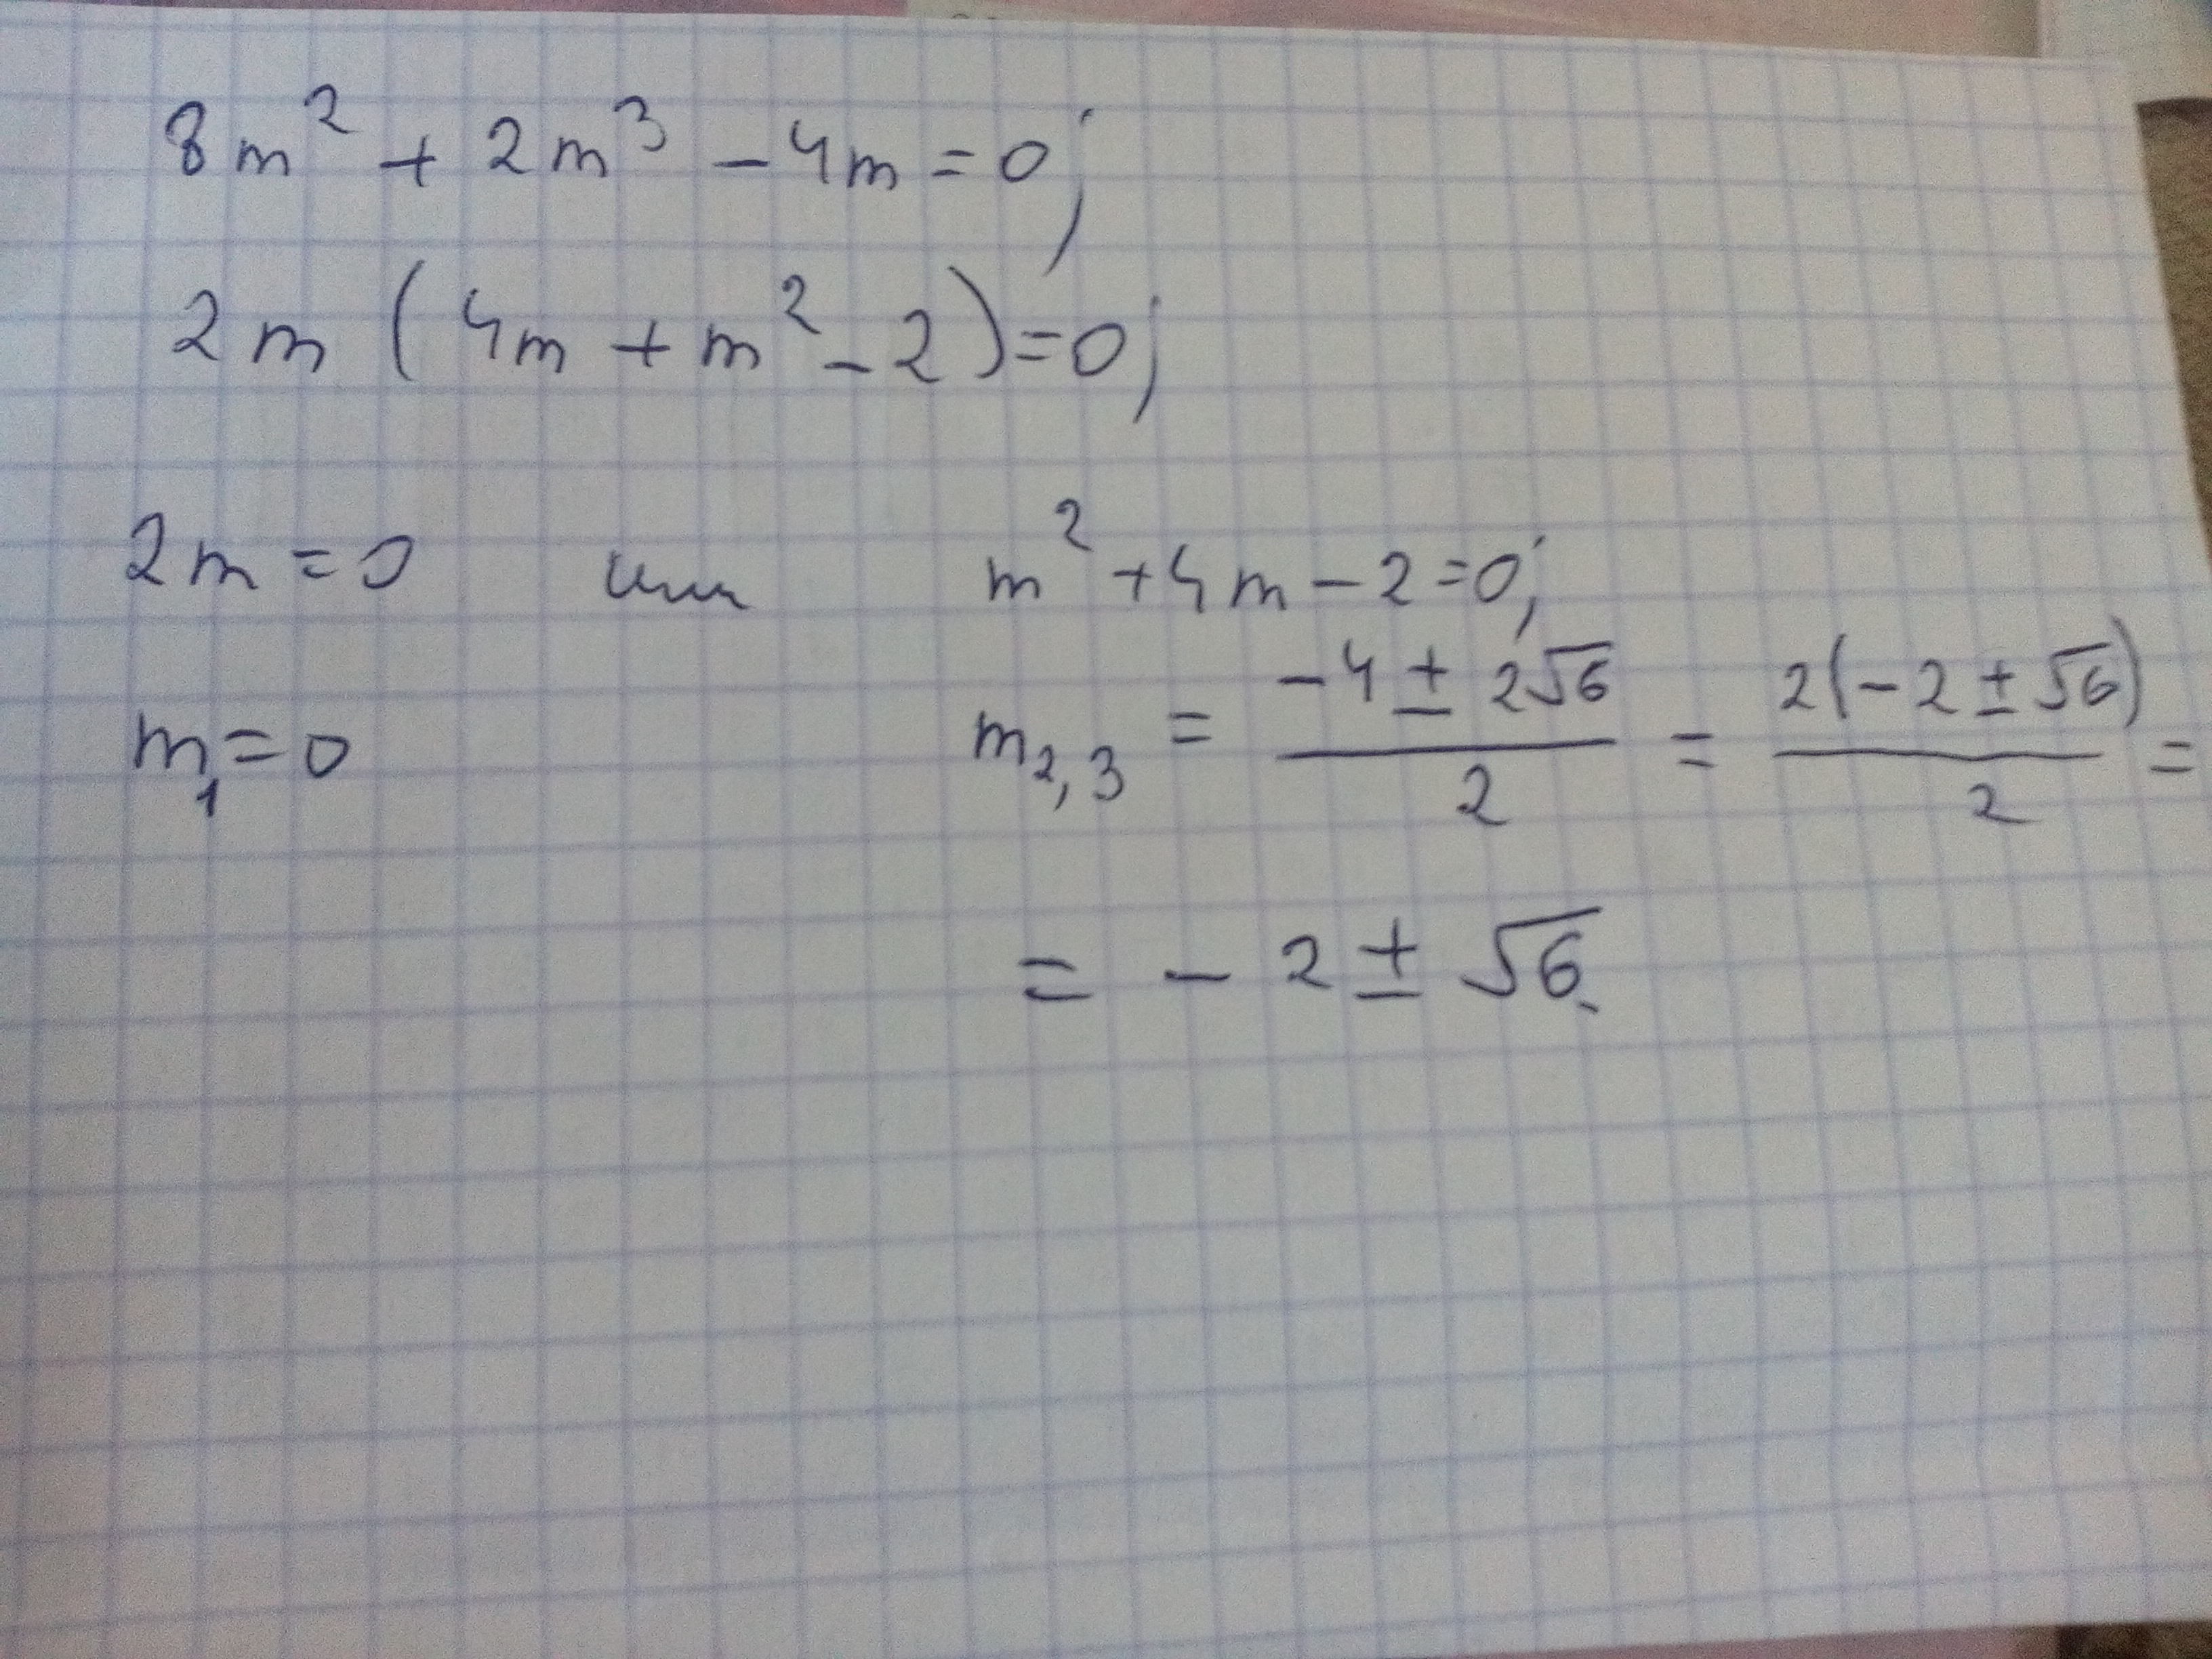 8m² + 2m³ - 4m = 0;
2m (4m + m² - 2) = 0;
2m = 0 или m² + 4m - 2 = 0;
m₁ = 0 m₂,₃ = (-4 ± 2√6)/2 = 2(-2 ± √6)/2 =
= - 2 ± √6.